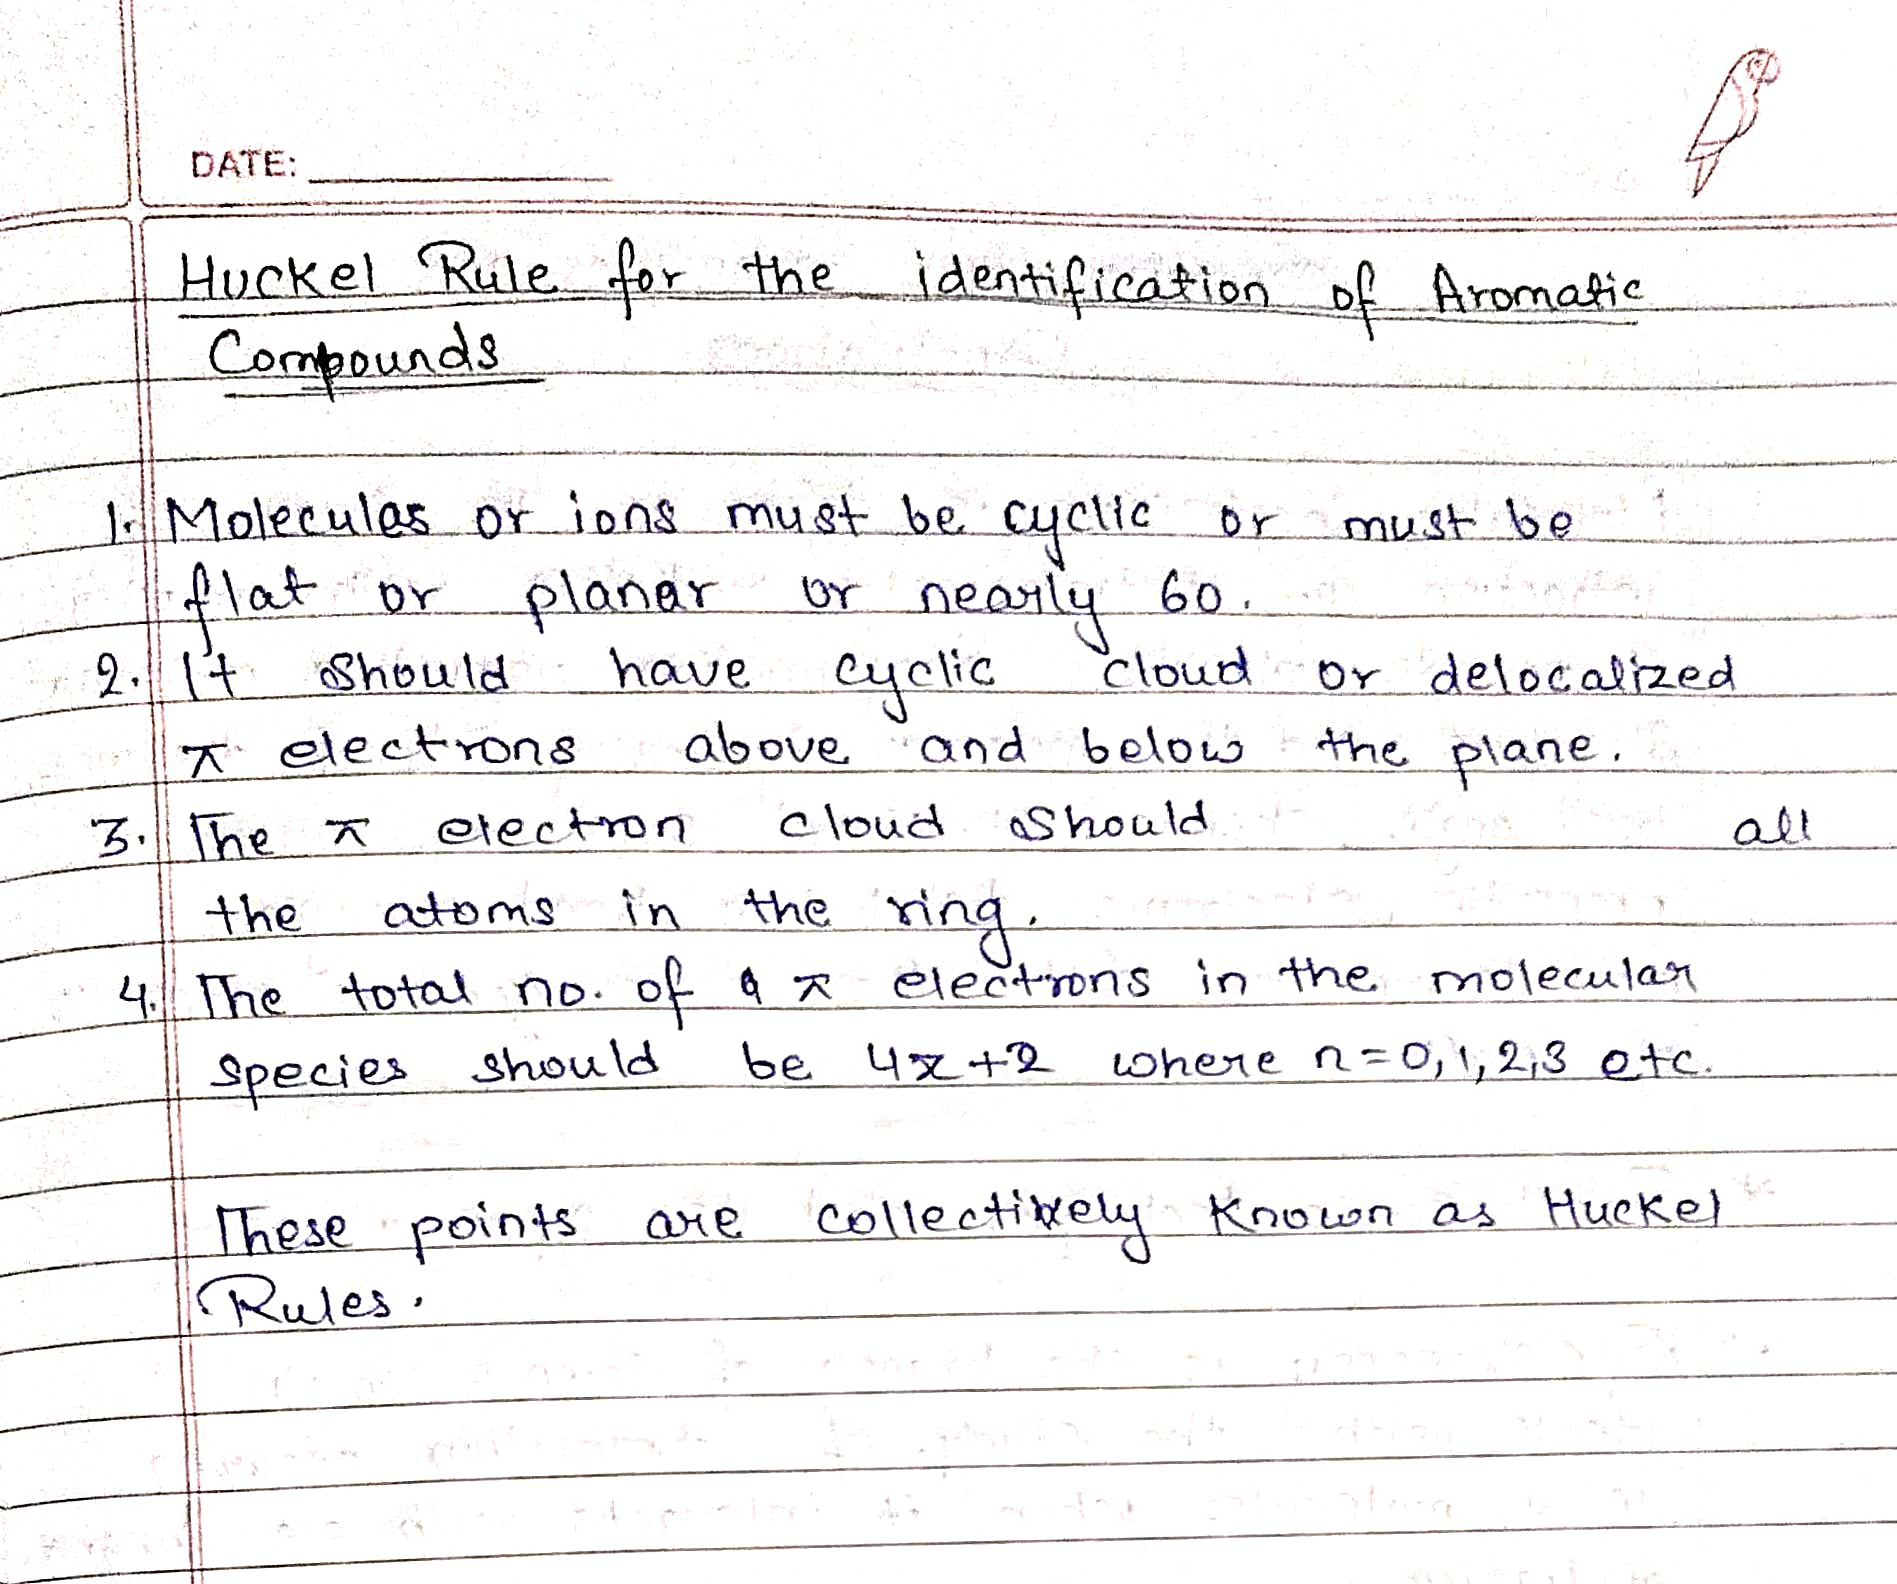 DATE:
Huckel Rule for the identification of Aromatic
Compounds
1. Molecules or ions must be cyclic or must be
flat or planar or nearly 60.
2. It should have cyclic cloud or delocalized
π electrons above and below the plane.
3. The π electron cloud should all
the atoms in the ring.
4. The total no. of π electrons in the molecular
species should be 4x+2 where n=0,1,2,3 etc.
These points are collectively known as Huckel
Rules.